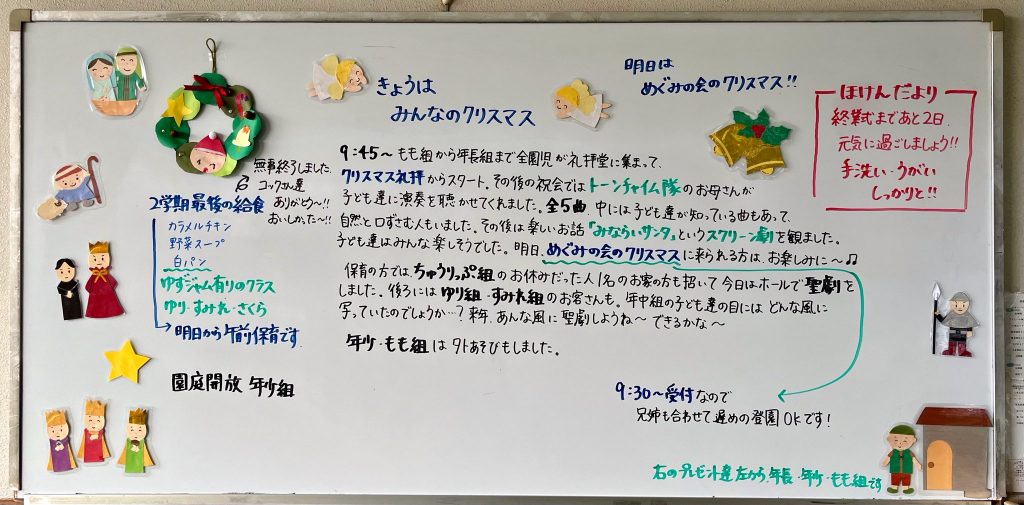 きょうは
みんなのクリスマス
明日は
めぐみの会のクリスマス!!
ほけんだより
終業式まであと2日.
元気に過ごしましょう!!
手洗い・うがい
しっかりと!!
無事終了しました.
コックさん達
ありがとう〜!!
おいしかった〜!!
2学期最後の給食
カラメルチキン
野菜スープ
白パン
ゆずジャム有りのクラス
ゆり・すみれ・さくら
明日から午前保育です.
園庭開放 年少組
9:45〜 もも組から年長組まで全園児が礼拝堂に集まって、
クリスマス礼拝からスタート。その後の祝会ではトーンチャイム隊のお母さんが
子ども達に演奏を聴かせてくれました。全5曲、中には子ども達が知っている曲もあって、
自然と口ずさむ人もいました。その後は楽しいお話「みならいサンタ」というスクリーン劇を観ました。
子ども達はみんな楽しそうでした。明日、めぐみの会のクリスマスに来られる方は、お楽しみに〜♫
保育の方では、ちゅうりっぷ組のお休みだった人1名のお客の方も招いて今日はホールで聖劇を
しました。後ろにはゆり組・すみれ組のお客さんも。年中組の子ども達の目にはどんな風に
写っていたのでしょうか…?来年、あんな風に聖劇しようね〜 できるかな〜
年少・もも組は外あそびもしました。
9:30〜受付なので
兄姉も合わせて遅めの登園OKです!
右のプレゼント達左から、年長・年少・もも組です